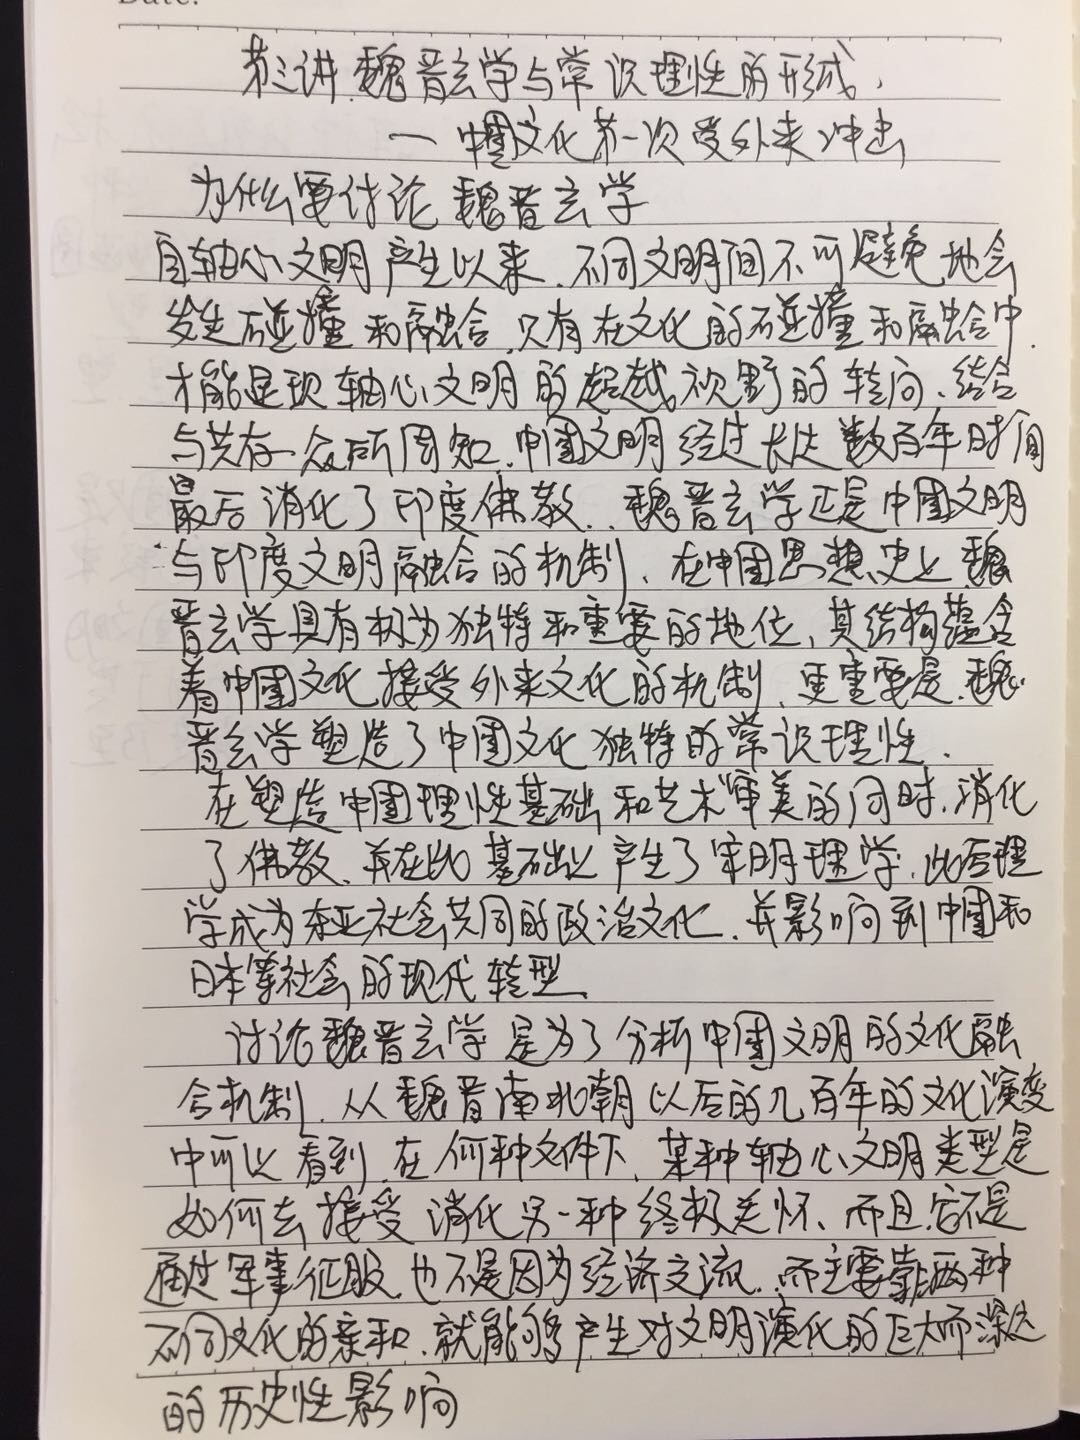 Date:
第三讲.魏晋玄学与常识理性的形成.
一 中国文化第一次受外来冲击
为什么要讨论魏晋玄学
自轴心文明产生以来.不同文明间不可避免地会
发生碰撞和融合.只有在文化的碰撞和融合中.
才能显现轴心文明的超越视野的转向、结合
与共存一众所周知.中国文明经过长达数百年时间
最后消化了印度佛教..魏晋玄学正是中国文明
与印度文明融合的机制、在中国思想史上魏
晋玄学具有极为独特和重要的地位、其结构蕴含
着中国文化接受外来文化的机制、更重要是.魏
晋玄学塑造了中国文化独特的常识理性.
在塑造中国理性基础和艺术审美的同时.消化
了佛教、并在此基础上产生了宋明理学.此后理
学成为东亚社会共同的政治文化.并影响到中国和
日本等社会的现代转型、
讨论魏晋玄学是为了分析中国文明的文化融
合机制.从魏晋南北朝以后的几百年的文化演变
中可以看到.在何种文件下、某种轴心文明类型是
如何去接受消化另一种终极关怀、而且.它不是
通过军事征服.也不是因为经济交流..而主要靠两种
不同文化的亲和.就能够产生对文明演化的巨大而深远
的历史性影响